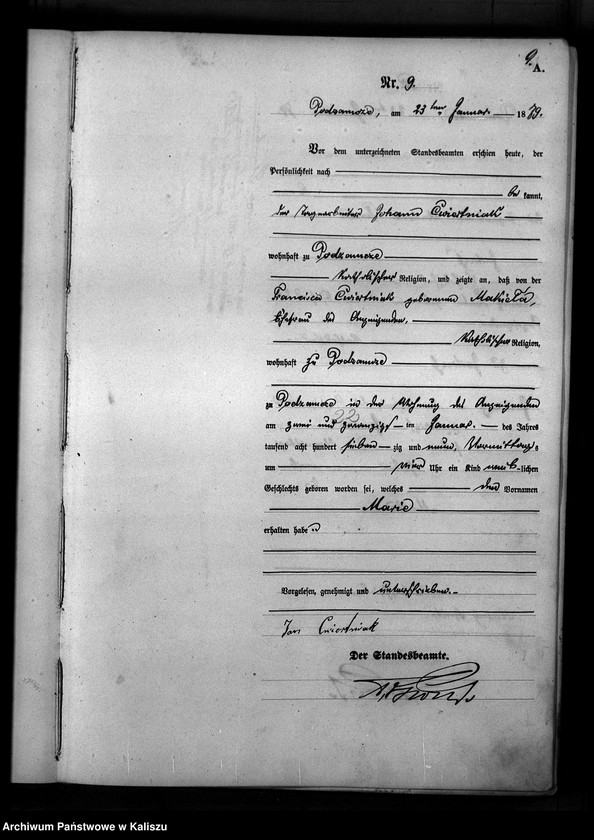 9.
A.
Nr. 9.
Podzamcze, am 23ten Januar. 1879.
Vor dem unterzeichneten Standesbeamten erschien heute, der
Persönlichkeit nach
be kannt,
der Tagearbeiter Johann Cwiertniak
wohnhaft zu Podzamcze
katholischer Religion, und zeigte an, daß von der
Francisca Cwiertniak geborenen Makieła,
Ehefrau des Anzeigenden,
katholischer Religion,
wohnhaft zu Podzamcze
zu Podzamcze in der Wohnung des Anzeigenden
22
am zwei und zwanzigs ten Januar. des Jahres
tausend acht hundert sieben zig und neun, Vormittags
um vier Uhr ein Kind weib lichen
Geschlechts geboren worden sei, welches den Vornamen
Marie
erhalten habe
Vorgelesen, genehmigt und unterschrieben.
Jan Cwiertniak
Der Standesbeamte.
Archiwum Państwowe w Kaliszu